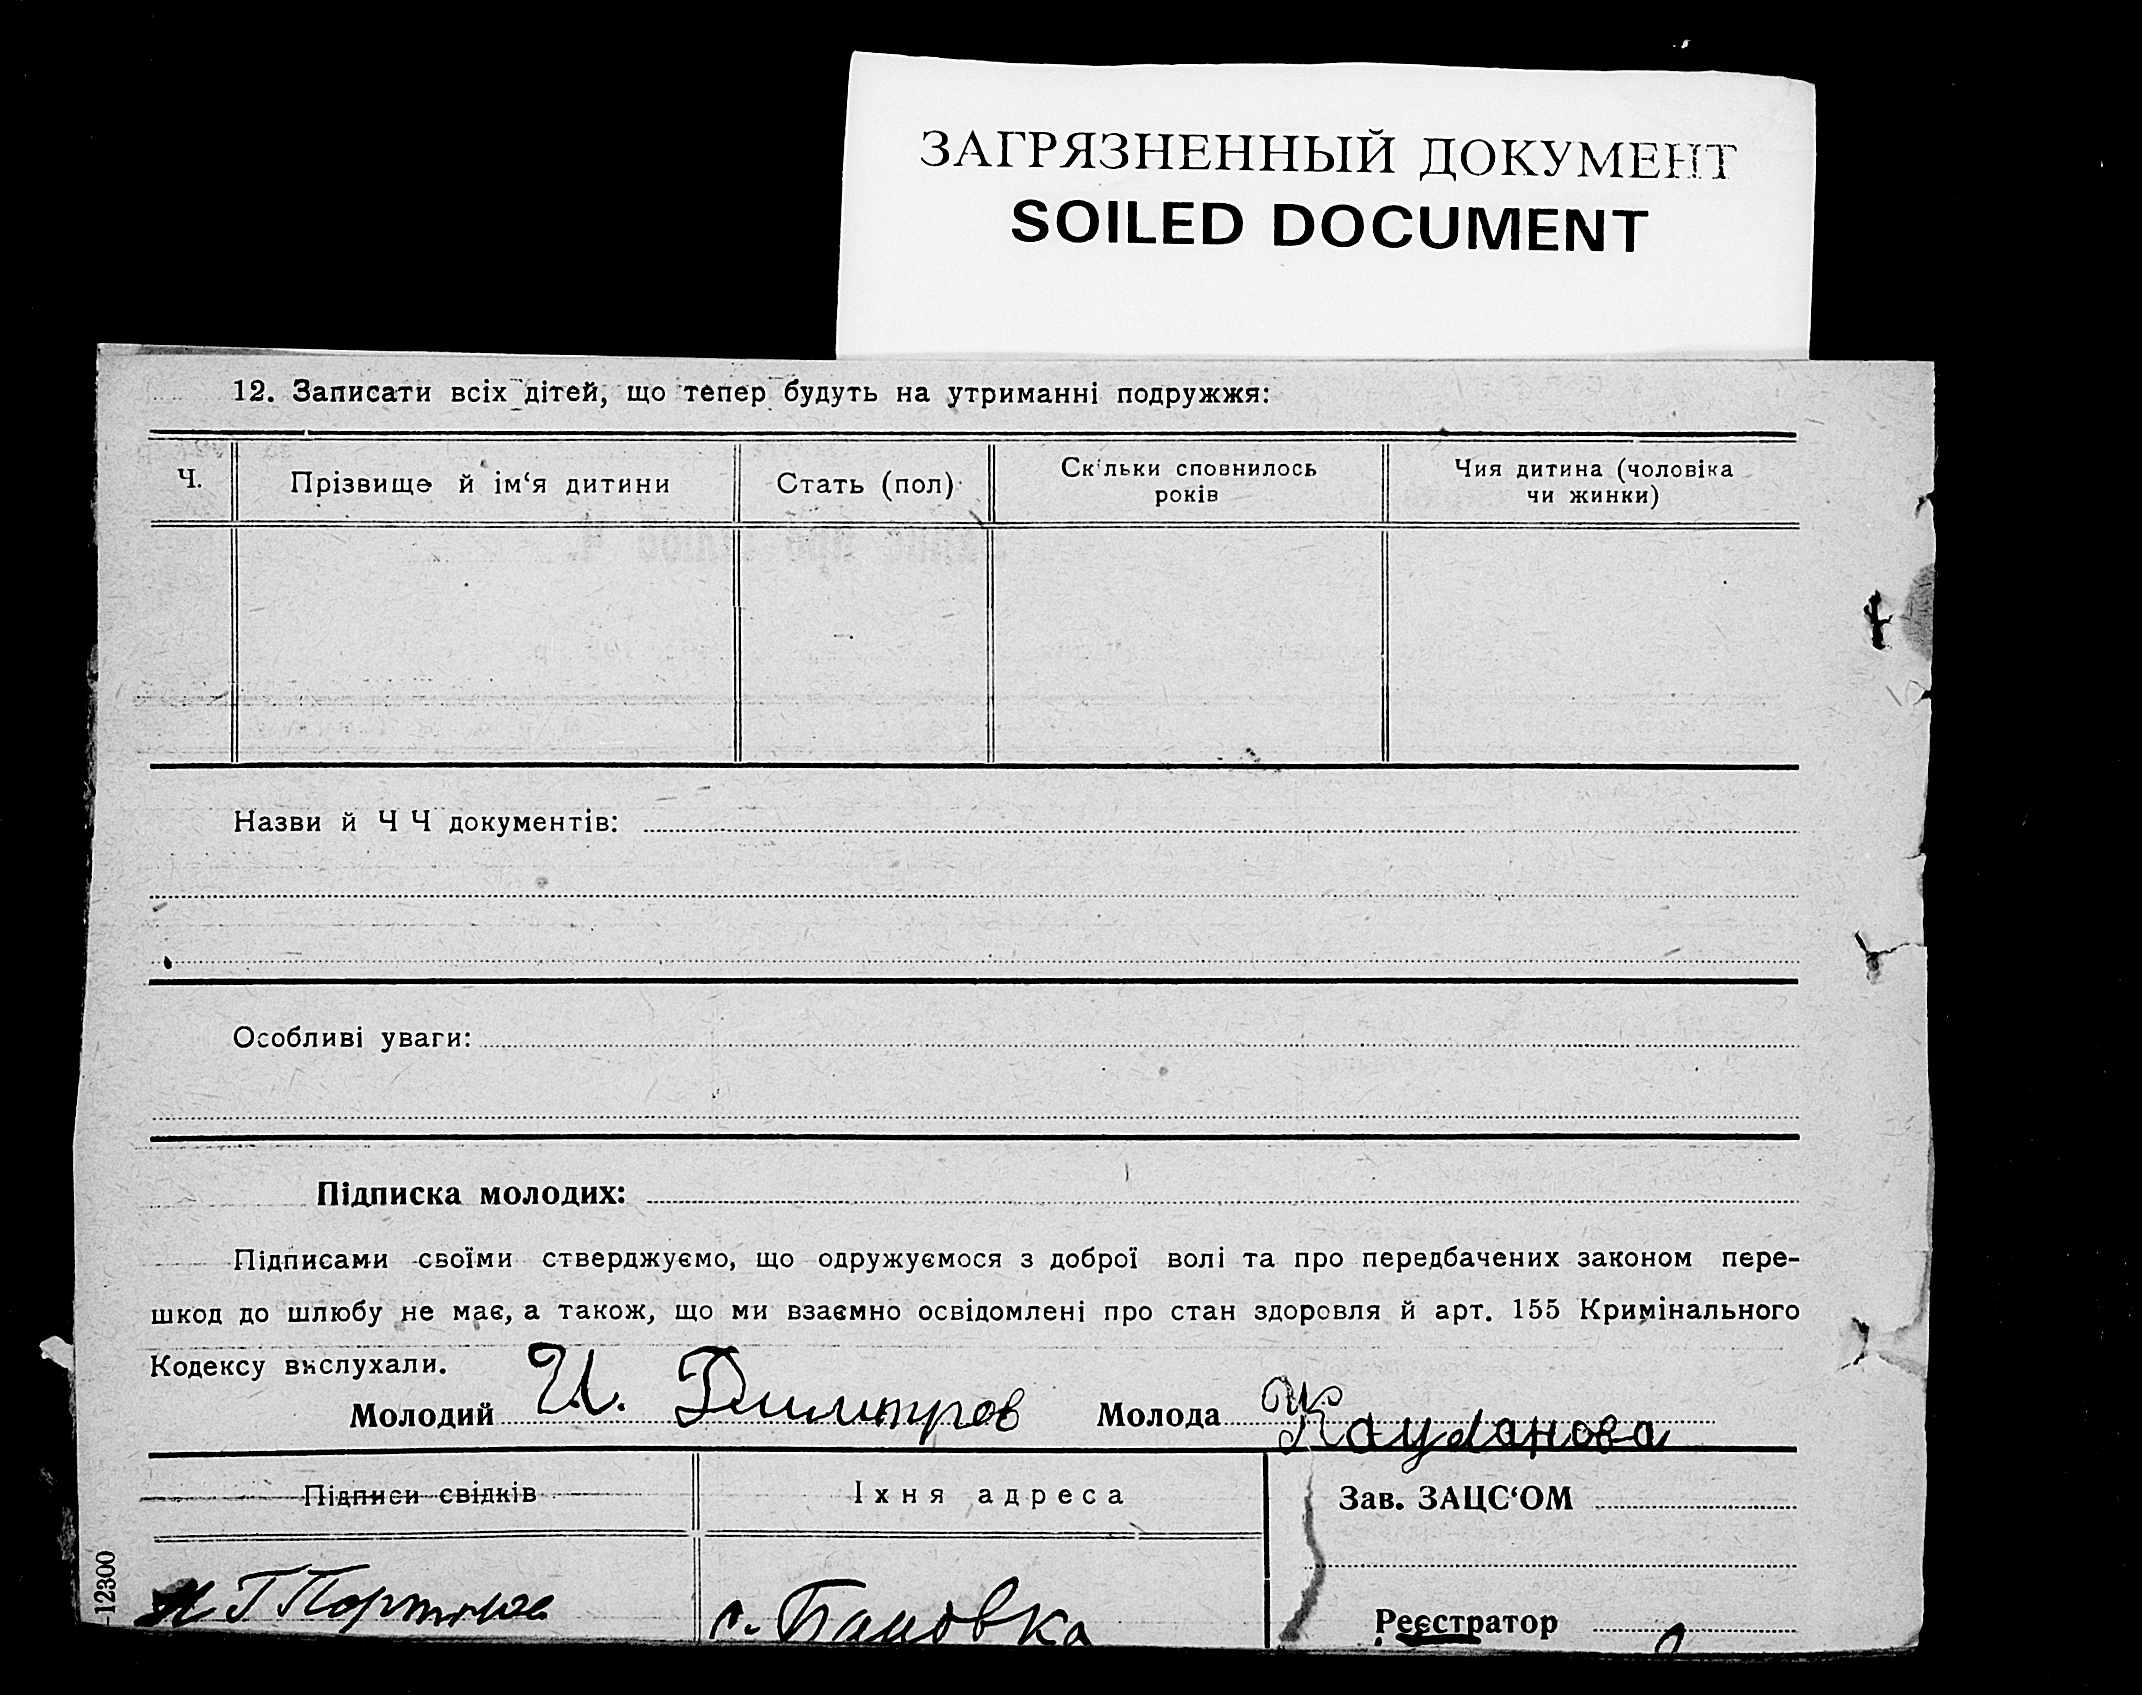 ЗАГРЯЗНЕННЫЙ ДОКУМЕНТ
SOILED DOCUMENT
12. Записати всіх дітей, що тепер будуть на утриманні подружжя:
Ч.
Прізвище й ім‘я дитини
Стать (пол)
Скільки сповнилось
років
Чия дитина (чоловіка
чи жинки)
Назви й Ч Ч документів:
Особливі уваги:
Підписка молодих:
Підписами своїми стверджуємо, що одружуємося з доброї волі та про передбачених законом пере-
шкод до шлюбу не має, а також, що ми взаємно освідомлені про стан здоровля й арт. 155 Кримінального
Кодексу вислухали.
Молодий И. Димитров Молода
Підписи свідків
Іхня адреса
Зав. ЗАЦС‘ОМ
с. Бановка
Реєстратор
-12300